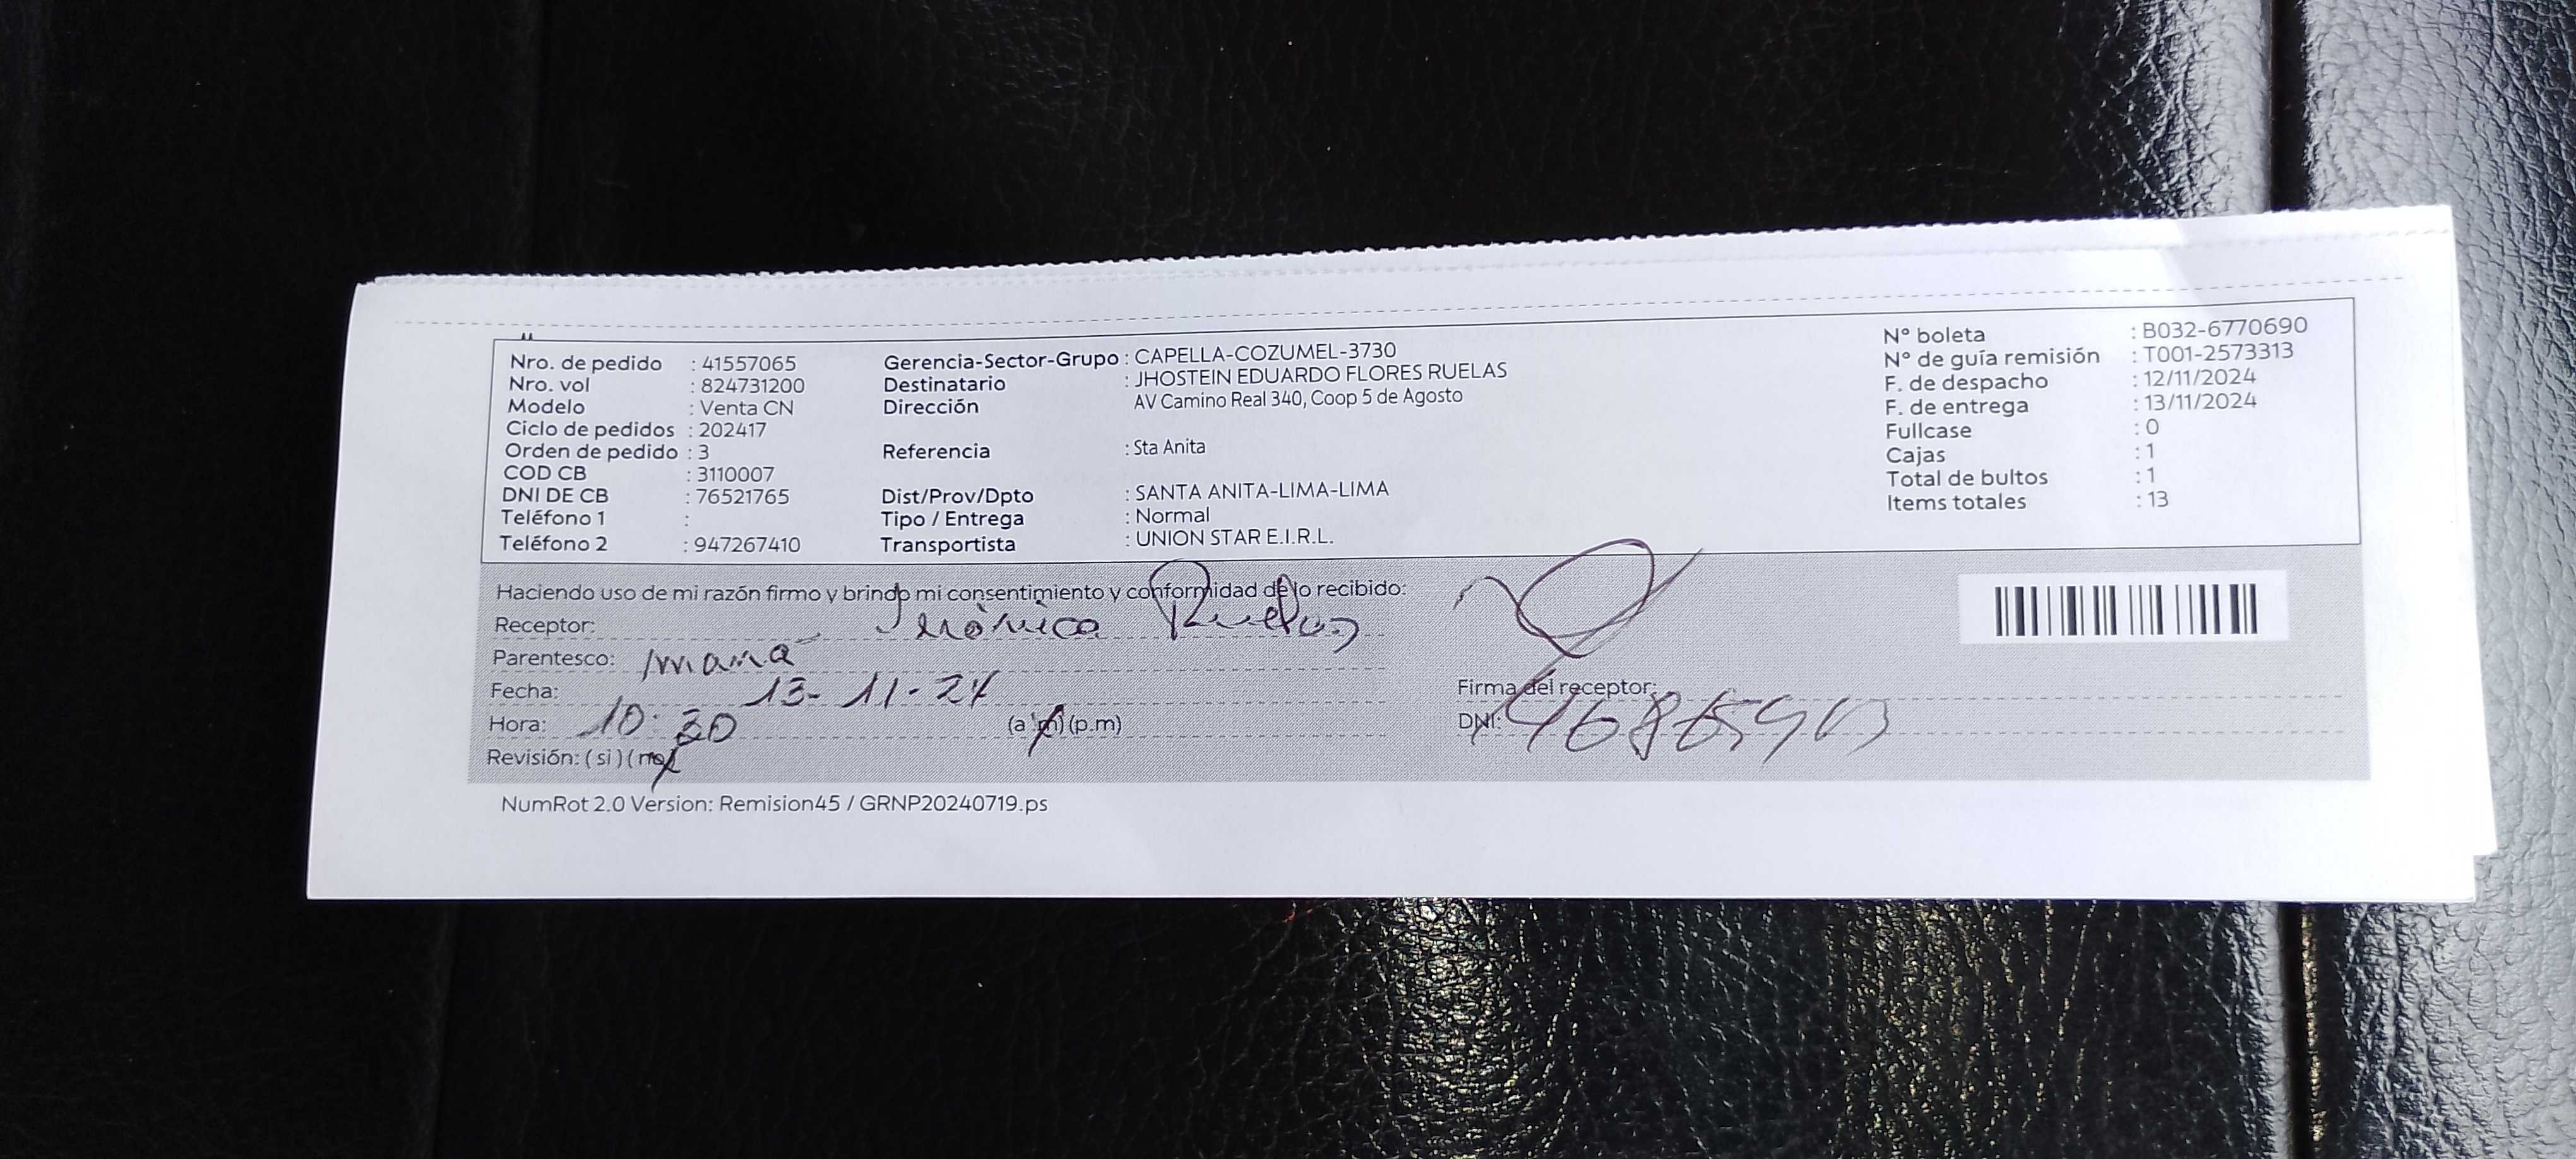 Nro. de pedido : 41557065
Nro. vol : 824731200
Modelo : Venta CN
Ciclo de pedidos : 202417
Orden de pedido : 3
COD CB : 3110007
DNI DE CB : 76521765
Teléfono 1 :
Teléfono 2 : 947267410
Gerencia-Sector-Grupo : CAPELLA-COZUMEL-3730
Destinatario : JHOSTEIN EDUARDO FLORES RUELAS
Dirección AV Camino Real 340, Coop 5 de Agosto
Referencia : Sta Anita
Dist/Prov/Dpto : SANTA ANITA-LIMA-LIMA
Tipo / Entrega : Normal
Transportista : UNION STAR E.I.R.L.
N° boleta : B032-6770690
N° de guía remisión : T001-2573313
F. de despacho : 12/11/2024
F. de entrega : 13/11/2024
Fullcase : 0
Cajas : 1
Total de bultos : 1
Items totales : 13
Haciendo uso de mi razón firmo y brindo mi consentimiento y conformidad de lo recibido:
Receptor: Ruelas
Parentesco: mamá
Fecha: 13-11-24
Hora: 10:30 (a.m) (p.m)
Revisión: (si) (no)
Firma del receptor:
DNI:
NumRot 2.0 Version: Remision45 / GRNP20240719.ps